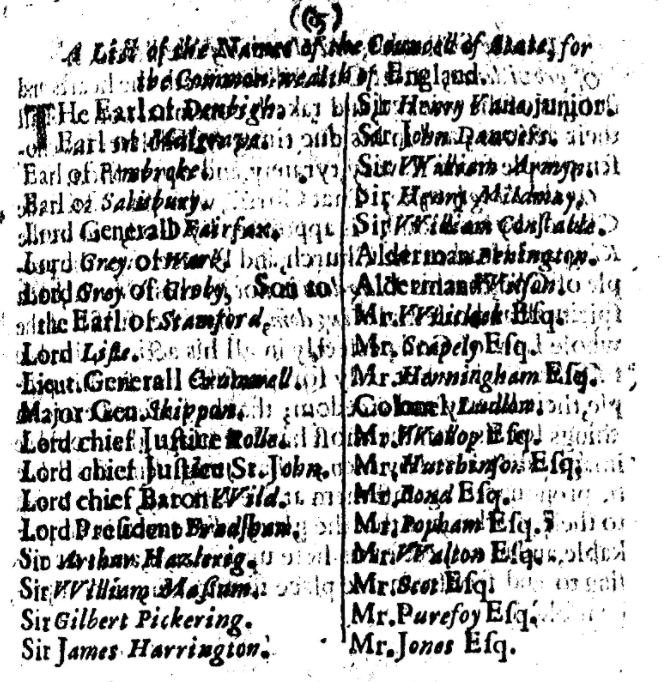 A List of the Names of the Councell of State, for
the Common-wealth of England.
THe Earl of Denbigh.
Earl of Mulgrave.
Earl of Pembroke.
Earl of Salisbury.
Lord Generall Fairfax.
Lord Grey of Wark.
Lord Grey of Groby, Son to
the Earl of Stamford.
Lord Lisle.
Lieut. Generall Crumwell.
Major Gen. Skippon.
Lord chief Justice Rolle.
Lord chief Justice St. John.
Lord chief Baron VVild.
Lord President Bradshaw.
Sir Arthur Hazlerig.
Sir VVilliam Maſſum.
Sir Gilbert Pickering.
Sir James Harrington.
Sir Henry Vane junior.
Sir John Danvers.
Sir VVilliam
Sir Henry Mildmay.
Sir VVilliam Conſtable.
Alderman Penington.
Alderman VVilſon.
Mr. VVhitlock Eſq.
Mr. Eſq.
Mr. Hanningham Eſq.
Colonel Ludlow.
Mr. VVallop Eſq.
Mr. Hutchinſon Eſq.
Mr. Bond Eſq.
Mr. Popham Eſq.
Mr. VValton Eſq.
Mr. Scot Eſq.
Mr. Purefoy Eſq.
Mr. Jones Eſq.